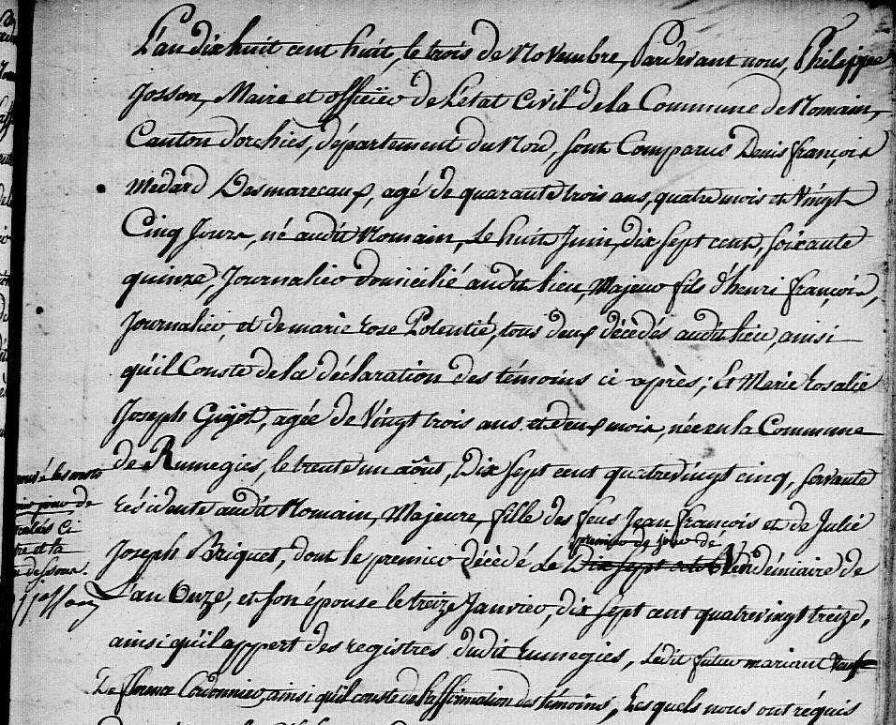 L'an dix huit cent huit, le trois de Novembre, Pardevant nous, Philippe
Josson, Maire et officier de L'état Civil de la Commune de Nomain,
Canton d'orchies, département du Nord, sont Comparus Denis françois
Medard Desmarecaux, agé de quarante trois ans, quatre mois et Vingt
Cinq Jours, né audit Nomain, Le huit Juin, dix sept cent, soixante
quinze, Journalier domicilié audit lieu, Majeur fils d'henri françois,
Journalier, et de marie rose Potentié, tous deux décédés audit lieu, ainsi
qu'il Conste de la déclaration des témoins ci après; Et Marie rosalie
Joseph Gigot, agée de Vingt trois ans et deux mois, née en la Commune
de Rumegies, le trente un août, Dix sept cent quatrevingt cinq, servante
résidente audit Nomain, Majeure, fille des feus Jean françois et de Julie
premier du jour de
Joseph Briquet, dont le premier décédé Le Dix sept Vendémiaire de
L'an Onze, et son épouse le treize Janvier, dix sept cent quatrevingt treize,
ainsi qu'il appert des registres dudit rumegies, Ledit futur mariant Veuf
De florence Cordonnier, ainsi qu'il conste de l'affirmation des témoins, Lesquels nous ont réquis
les mots
jour de
ci
et la
dessous.